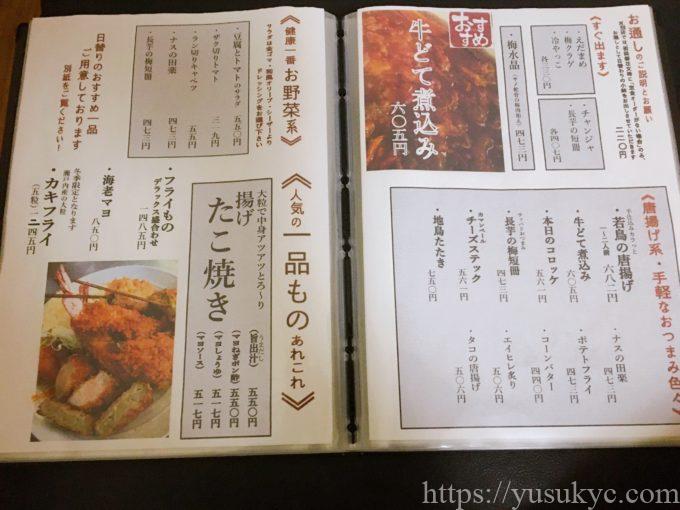 お通しのご説明とお願い
《すぐ出ます》
・えだまめ
・梅クラゲ
・冷やっこ
各三三〇円
・チャンジャ
・長芋の短冊
各四〇七円
おすすめ
・梅水晶
四七三円
牛どて煮込み
六〇五円
《唐揚げ系・手軽なおつまみ色々》
・若鳥の唐揚げ
1~2人前
六八二円
・牛どて煮込み
六〇五円
・本日のコロッケ
五六一円
・長芋の梅短冊
四七三円
カマンベール
・チーズスティック
五六一円
・地鳥たたき
七五〇円
・ナスの田楽
四七三円
・ポテトフライ
四七三円
・コーンバター
四四〇円
・エイヒレ炙り
五〇六円
・タコの唐揚げ
五〇六円
《健康一番お野菜系》
サラダは金ゴマ・和風オリーブ・シーザーより
ドレッシングをお選び下さい
・豆腐とトマトのサラダ
五五〇円
・ザク切りトマト
三一九円
・ラン切りキャベツ
五五円
・ナスの田楽
四七三円
・長芋の梅短冊
四七三円
日替りのおすすめ一品
ご用意しております
別紙をご覧ください!
《人気の一品ものあれこれ》
大粒で中身アツアツとろ~り
揚げたこ焼き
(旨出汁)
五五〇円
(マヨねぎポン酢)
五五〇円
(マヨしょうゆ)
五一七円
(マヨソース)
五一七円
・フライもの
デラックス盛合わせ
一四八五円
・海老マヨ
八五〇円
冬季限定となります
瀬戸内産の大粒
・カキフライ
(五粒)一二四五円
https://yusukyc.com